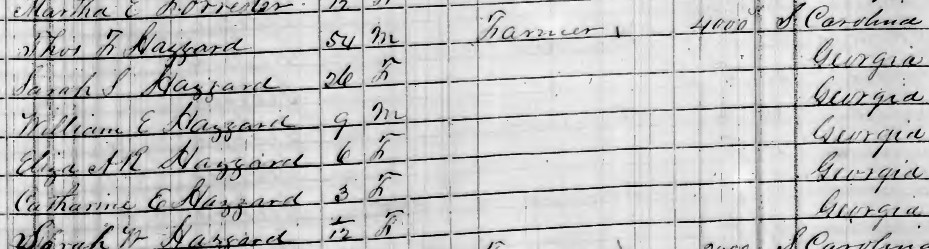 Martha E Forrester 12 F
Thos F Hazzard 54 M Farmer 4000 S Carolina
Sarah S Hazzard 26 F Georgia
William E Hazzard 9 M Georgia
Eliza A R Hazzard 6 F Georgia
Catharine E Hazzard 3 F Georgia
Sarah W Hazzard 1/12 F Georgia
2000 S Carolina